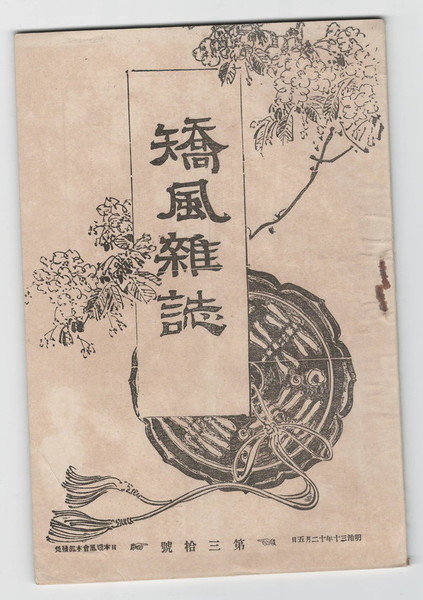 矯風雜誌
明治三十年十二月五日
第三拾號
日本矯風會本部